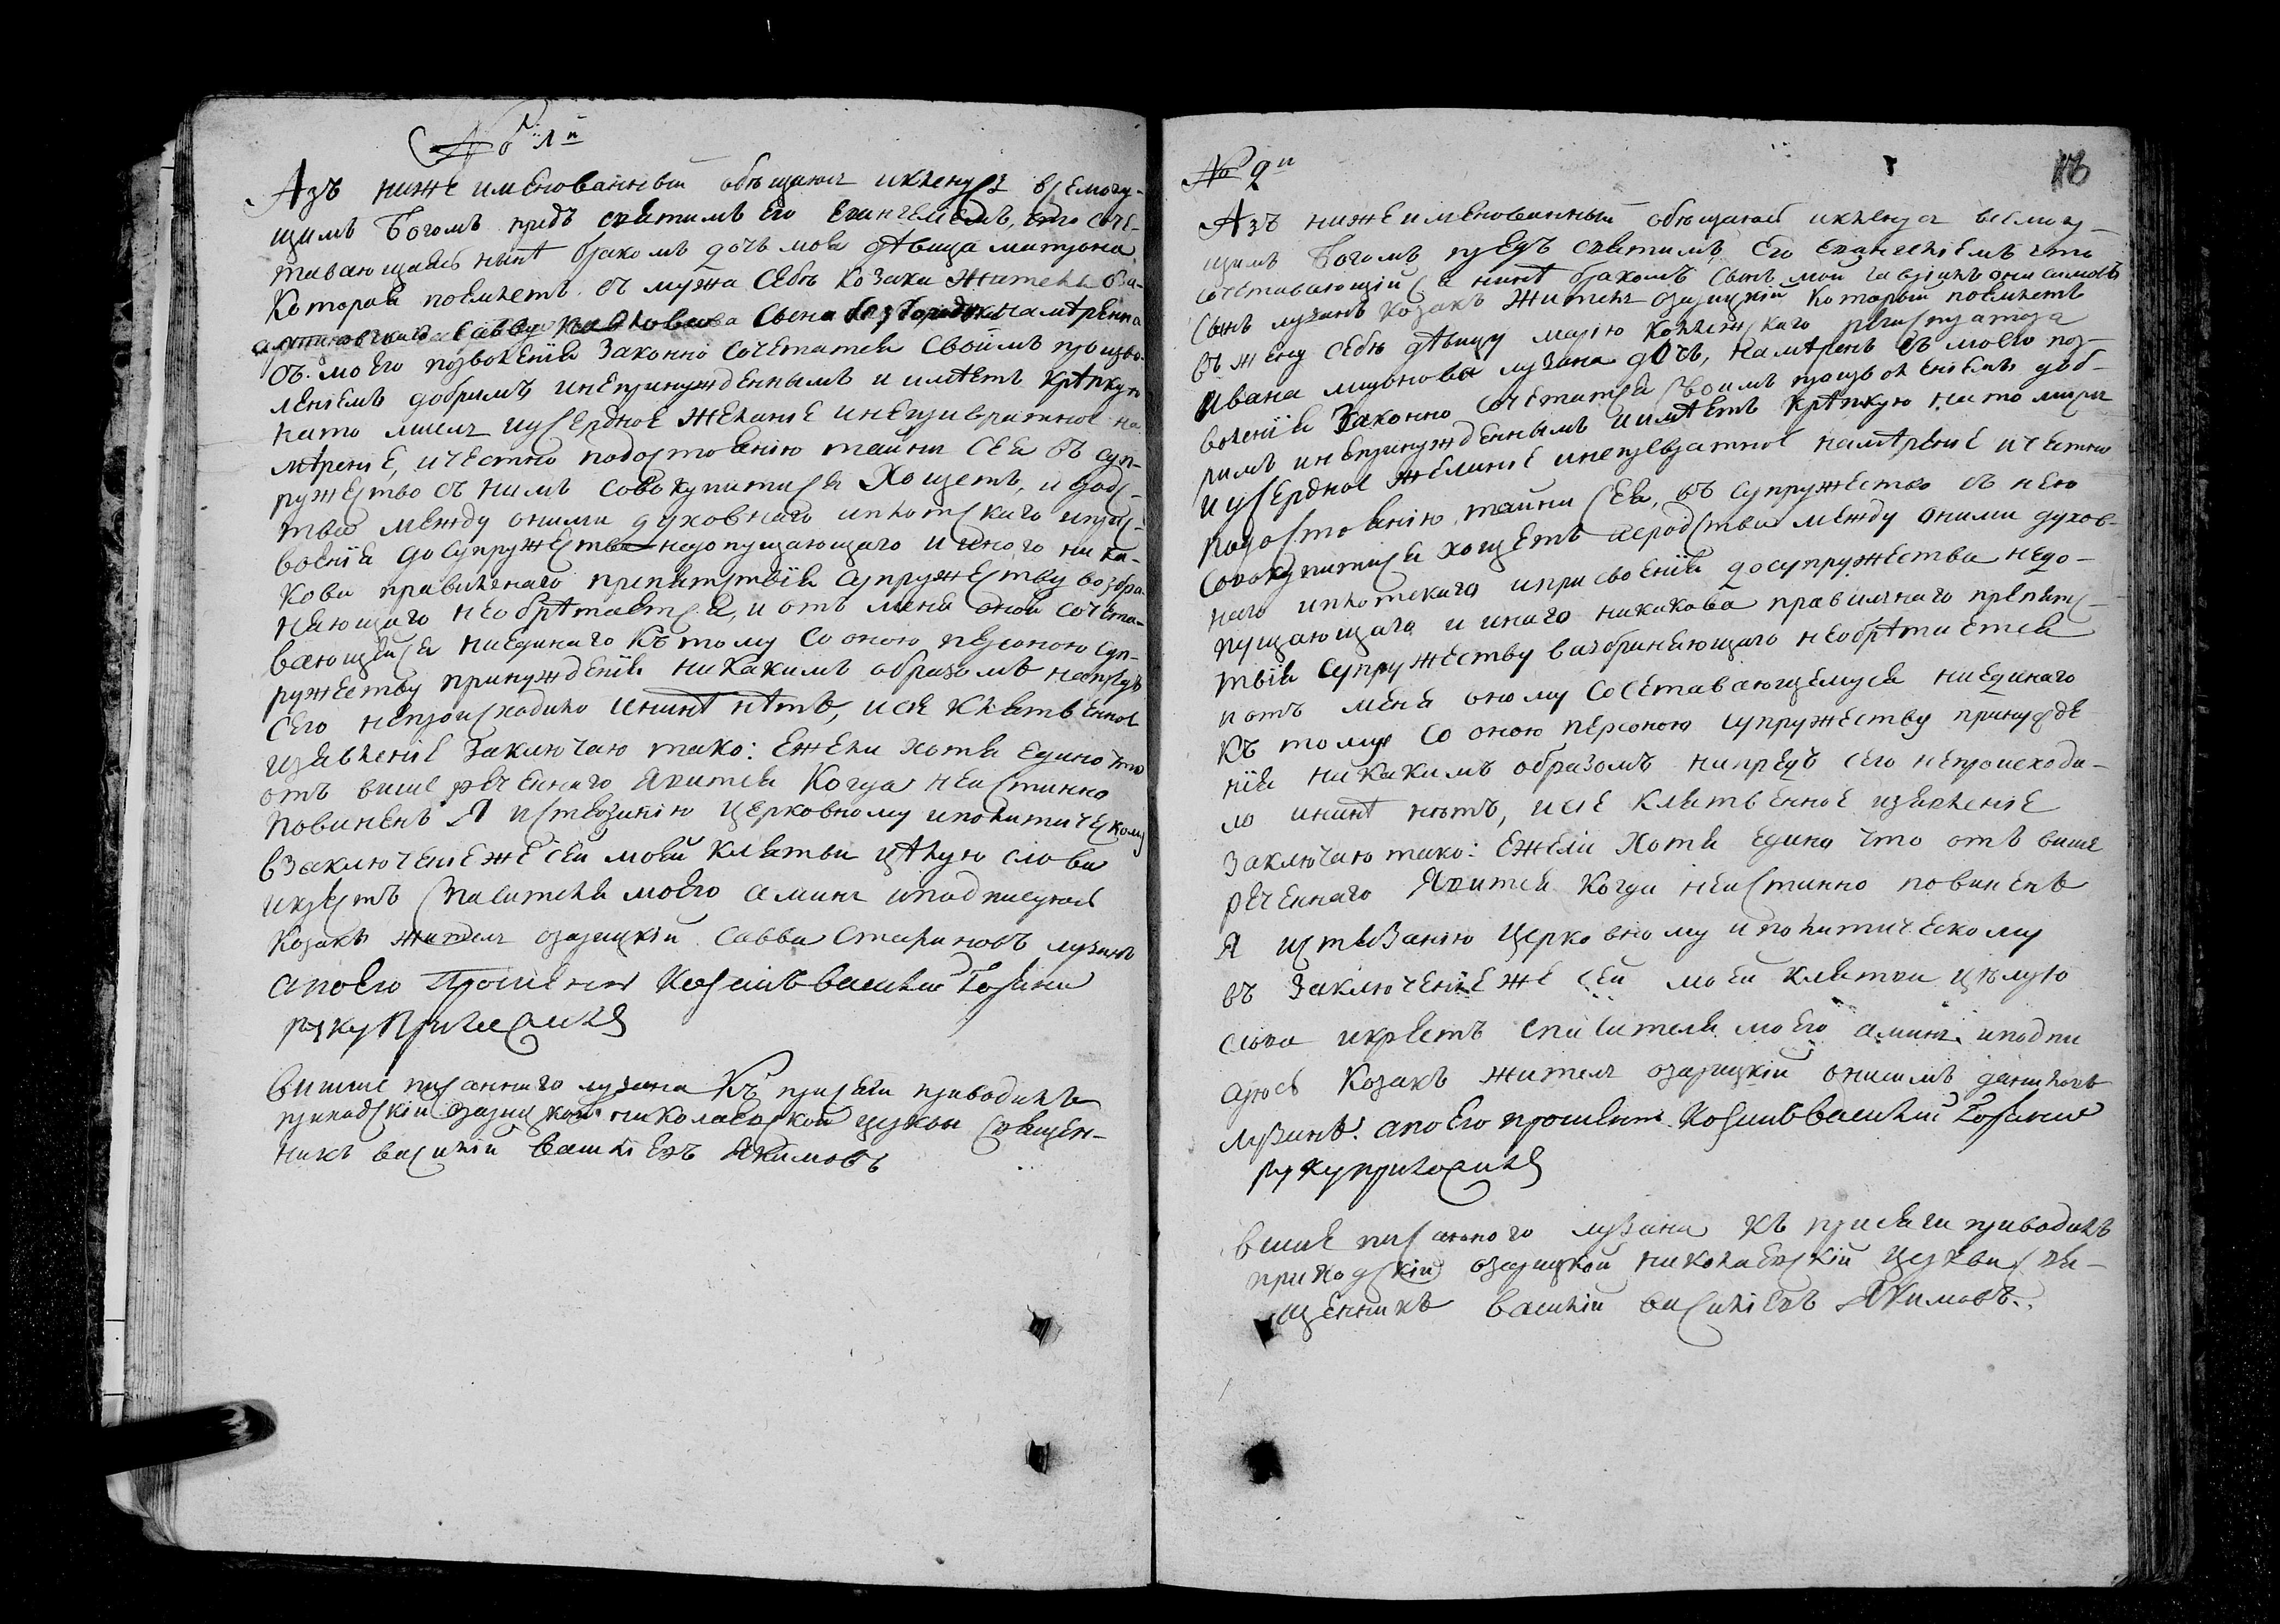 № 1й
Азъ ниже именованный обѣщаюсь и кленуся всемогу-
щимъ Богомъ предъ святимъ его евангелиемъ, что соче-
тавающаясь нинѣ бракомъ дочь моя дѣвица матрона
которая поемлетъ въ мужа себѣ козака жителя
савву сена намѣренна
съ моего позволенїя законно сочетатся своимъ произво-
лениемъ добримъ и непринужденнымъ и имѣетъ крѣпкую
на то мисль и усердное желание и непривратное на-
мѣрение, и честно подостоянию тайни сея въ суп-
ружество съ нимъ совокупитися хощетъ, и родс-
тва между оними духовнаго и плотскаго и прис-
военїя до супружества недопущающаго и иного ника-
кова правилнаго препятствїя супружеству возбра-
няющаго необрѣтается, и отъ меня оной сочета-
вающейся ниединаго къ тому со оною персоною суп-
ружеству принужденїя никакимъ образомъ напредъ
сего непроисходило и нинѣ нѣтъ, и сие клятвенное
изявление заключаю тако: ежели хотя едино что
отъ више реченнаго явится когда неистинно
повиненъ я истязанию церковному и политическому
въ заключение же сей моей клятви цѣлую слова
и крестъ спасителя моего аминь и подписуюсь
козакъ жителъ озарицкїй савва лузинъ
а по его прошению василий
руку приложилъ
вишше писанного лузина къ присяги приводилъ
приходскїй озарицкой николаевской церкви священ-
никъ василїй василїевъ якимовъ
№ 2й
Азъ нижеименованный обѣщаюсь и кленуся всемогу-
щимъ Богомъ предъ святимъ его евангелиемъ что
сочетавающїйся нинѣ бракомъ синъ мой гаврїилъ онисимовъ
синъ лузинъ козакъ жителъ озарицкїй который поемлетъ
въ жену себѣ дѣвицу марїю коллежскаго регистратора
ивана миронова лузина дочь, намѣренъ съ моего поз-
воленїя законно сочетатся своимъ произволениемъ доб-
римъ и непринужденнымъ и имѣетъ крѣпкую на то мисль
и усердное желание и непревратное намѣрение и честно
подостоянию тайни сея, въ супружество съ нею
совокупитися хощетъ и родства между оними духов-
наго и плотскаго и присвоенїя до супружества недо-
пущающаго и инаго никакова правилнаго препятс-
твїя супружеству взбраняющаго необрѣтается
и отъ меня оному сочетавающемуся ниединаго
къ тому со оною персоною супружеству принужде
нїя никакимъ образомъ напредъ сего непроисходи-
ло и нинѣ нѣтъ, и сие клятвенное изявление
заключаю тако: ежели хотя едино что отъ више
реченнаго явится когда неистинно повиненъ
я истязанию церковному и политическому
въ заключенїе же сей моей клятви цѣлую
слова и крестъ спасителя моего аминь и подпи
суюсь козакъ жителъ озарицкїй онисимъ даниловъ
лузинъ. а по его прошению василий
руку приложилъ
више писанного лузина къ присяги приводилъ
приходскїй озарицкой николаевскїй церкви свя-
щенникъ василїй василїевъ якимовъ.